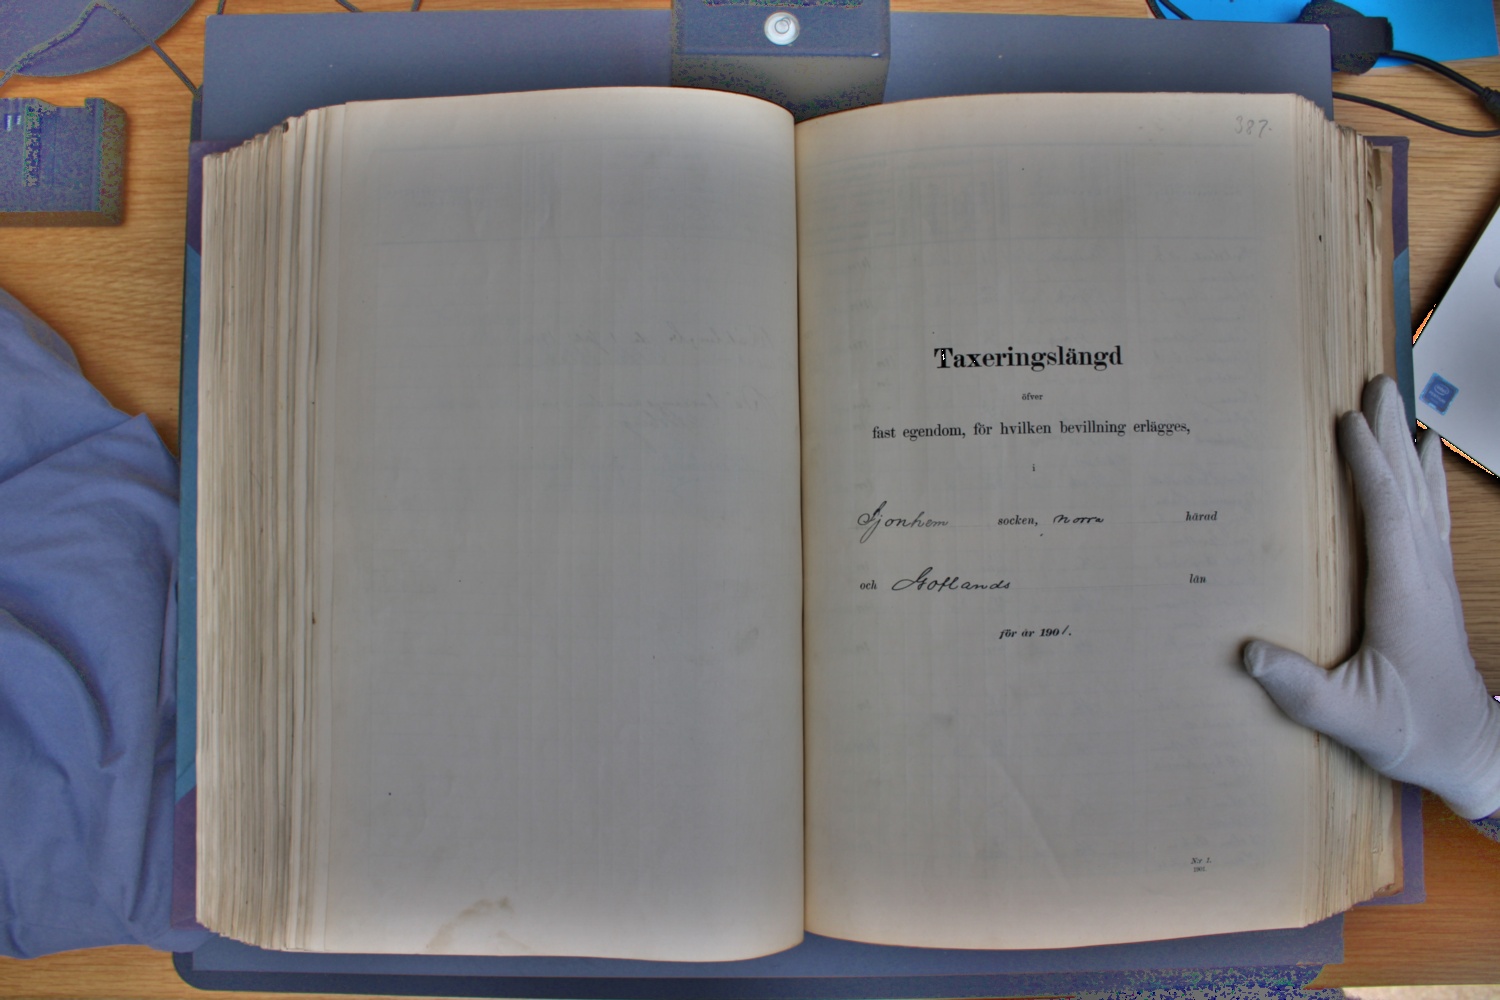 387.
Taxeringslängd
öfver
fast egendom, för hvilken bevillning erlägges,
i
Sjonhem socken, norra härad
och Gotlands län
för år 1901.
N:r 1.
1901.